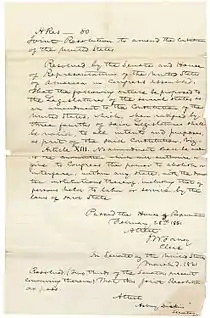 Joint Resolution to amend the Constitution
of the United States
Resolved by the Senate and House
of Representatives of the United States
of America in Congress assembled,
That the following article be proposed to
the Legislatures of the several States as
an amendment to the Constitution of the
United States, which, when ratified by
three fourths of said Legislatures, shall
be valid, to all intents and purposes,
as part of the said Constitution, viz:
Article XIII. No amendment shall be
made to the Constitution which will authorize or
give to Congress the power to abolish or
interfere, within any State, with the domestic
institutions thereof, including that of
persons held to labor or service by the
laws of said State.
Passed the House of Representatives
February 28, 1861
Attest
Clerk
In Senate of the United States
March 2, 1861
Resolved,
Attest